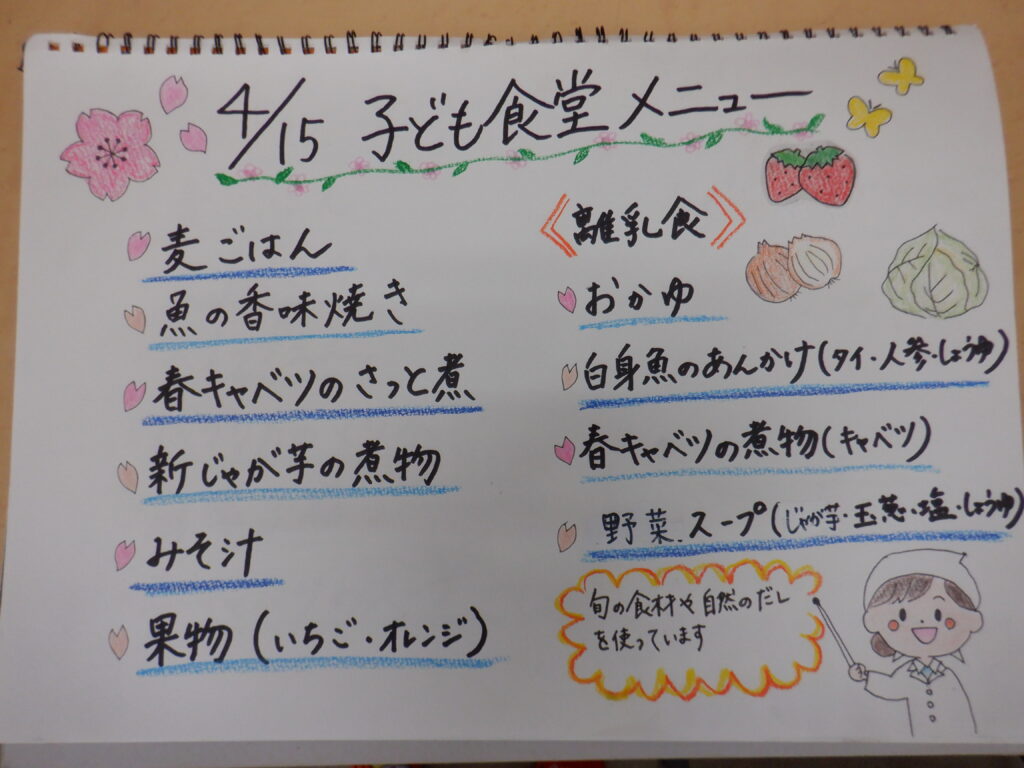 4/15 子ども食堂メニュー
麦ごはん
魚の香味焼き
春キャベツのさっと煮
新じゃが芋の煮物
みそ汁
果物(いちご・オレンジ)
《離乳食》
おかゆ
白身魚のあんかけ(タイ・人参・しょうゆ)
春キャベツの煮物(キャベツ)
野菜スープ(じゃが芋・玉葱・塩・しょうゆ)
旬の食材や自然のだし
を使っています